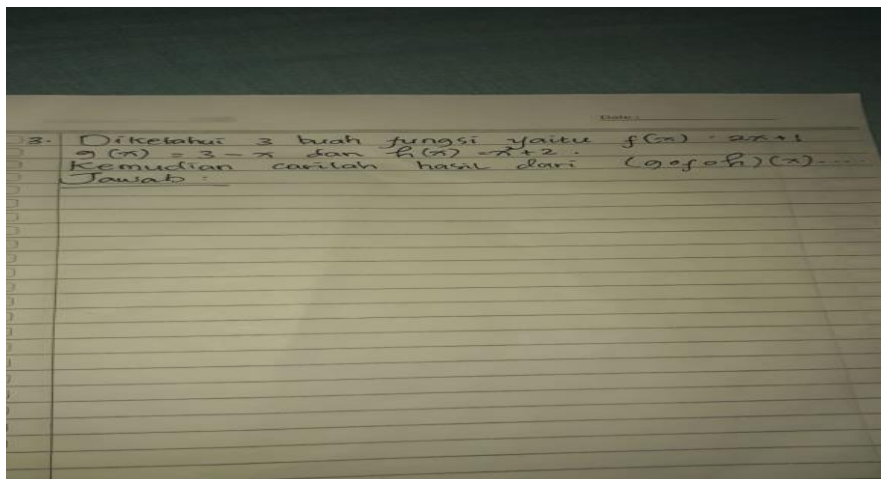 Date :
3. Diketahui 3 buah fungsi yaitu f(x) = 2x + 1
g(x) = 3 - x dan h(x) = x² + 2 .
Kemudian carilah hasil dari (g o f o h)(x) ....
Jawab :